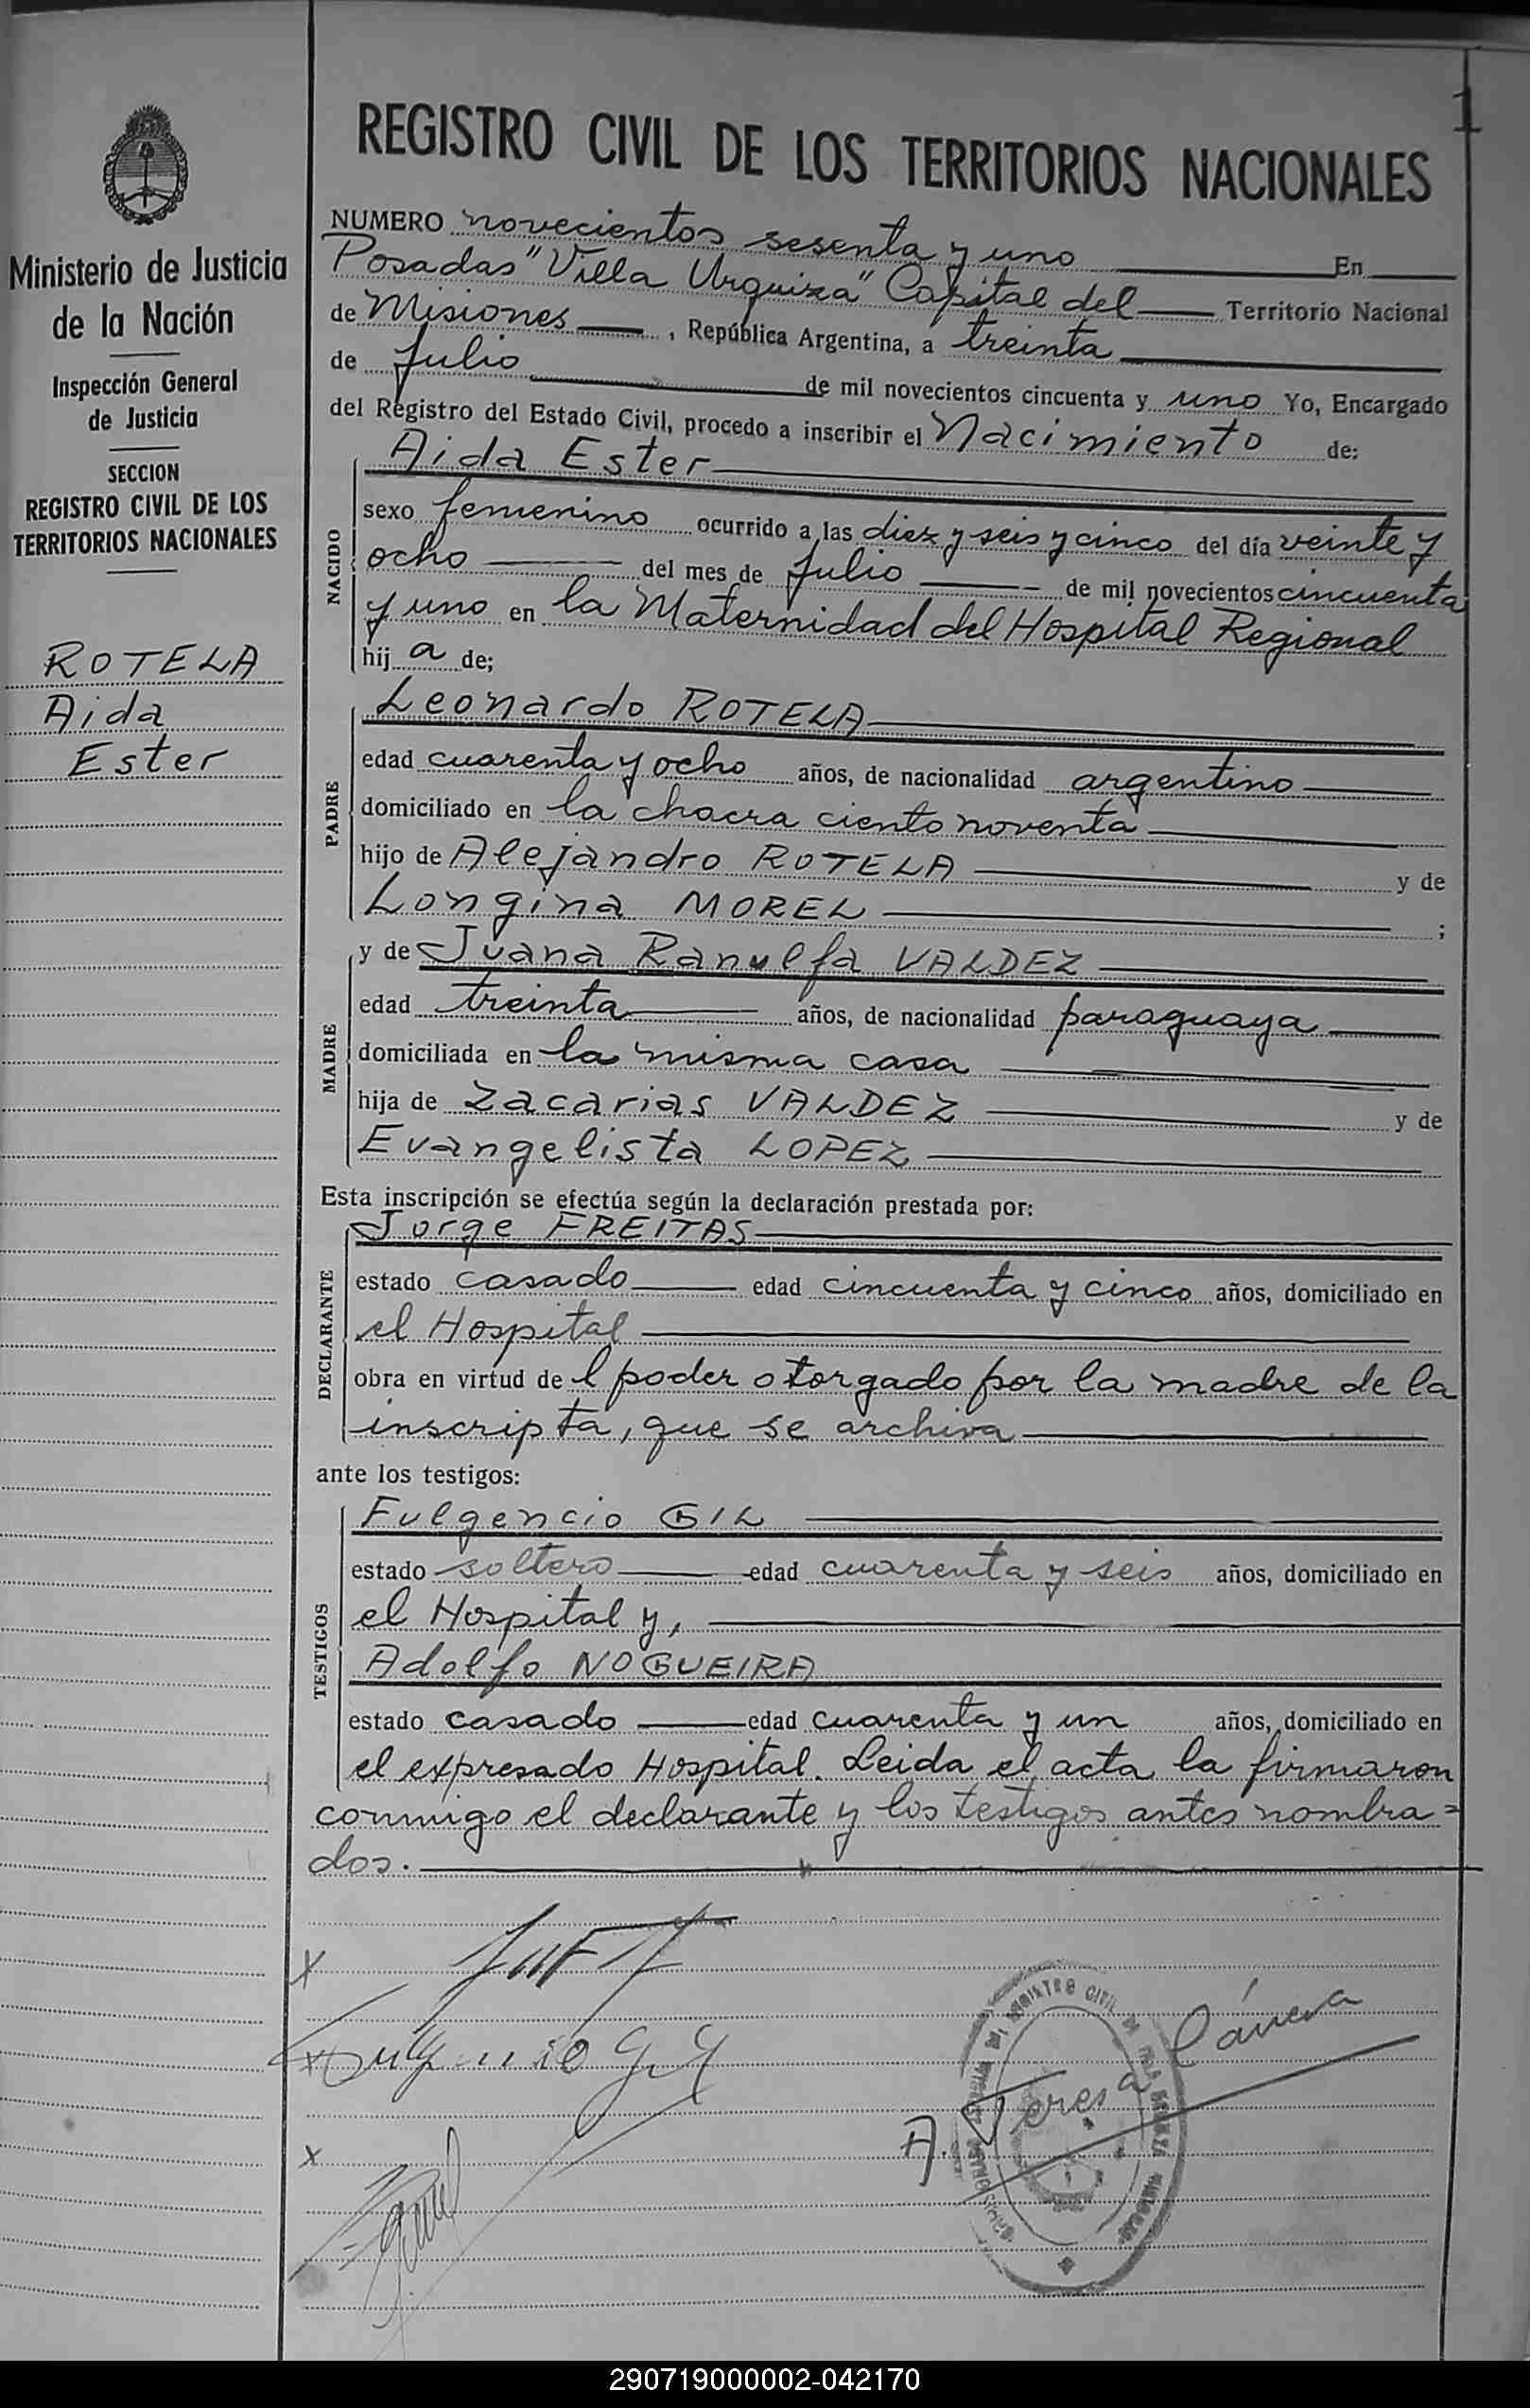 1
REGISTRO CIVIL DE LOS TERRITORIOS NACIONALES
Ministerio de Justicia
de la Nación
Inspección General
de Justicia
SECCION
REGISTRO CIVIL DE LOS
TERRITORIOS NACIONALES
ROTELA
Aida
Ester
NUMERO novecientos sesenta y uno En
Posadas "Villa Urquiza" Capital del Territorio Nacional
de Misiones , República Argentina, a treinta
de Julio de mil novecientos cincuenta y uno Yo, Encargado
del Registro del Estado Civil, procedo a inscribir el Nacimiento de:
NACIDO
Aida Ester
sexo femenino ocurrido a las diez y seis y cinco del día veinte y
ocho del mes de Julio de mil novecientos cincuenta
y uno en la Maternidad del Hospital Regional
hij a de;
PADRE
Leonardo ROTELA
edad cuarenta y ocho años, de nacionalidad argentino
domiciliado en la chacra ciento noventa
hijo de Alejandro ROTELA y de
Longina MOREL ;
MADRE
y de Juana Ranulfa VALDEZ
edad treinta años, de nacionalidad paraguaya
domiciliada en la misma casa
hija de Zacarias VALDEZ y de
Evangelista LOPEZ
Esta inscripción se efectúa según la declaración prestada por:
DECLARANTE
Jorge FREITAS
estado casado edad cincuenta y cinco años, domiciliado en
el Hospital
obra en virtud de l poder otorgado por la madre de la
inscripta, que se archiva
ante los testigos:
TESTIGOS
Fulgencio GIL
estado soltero edad cuarenta y seis años, domiciliado en
el Hospital y,
Adolfo NOGUEIRA
estado casado edad cuarenta y un años, domiciliado en
el expresado Hospital. Leida el acta la firmaron
conmigo el declarante y los testigos antes nombra=
dos.
x
x
x
A. Teresa
290719000002-042170